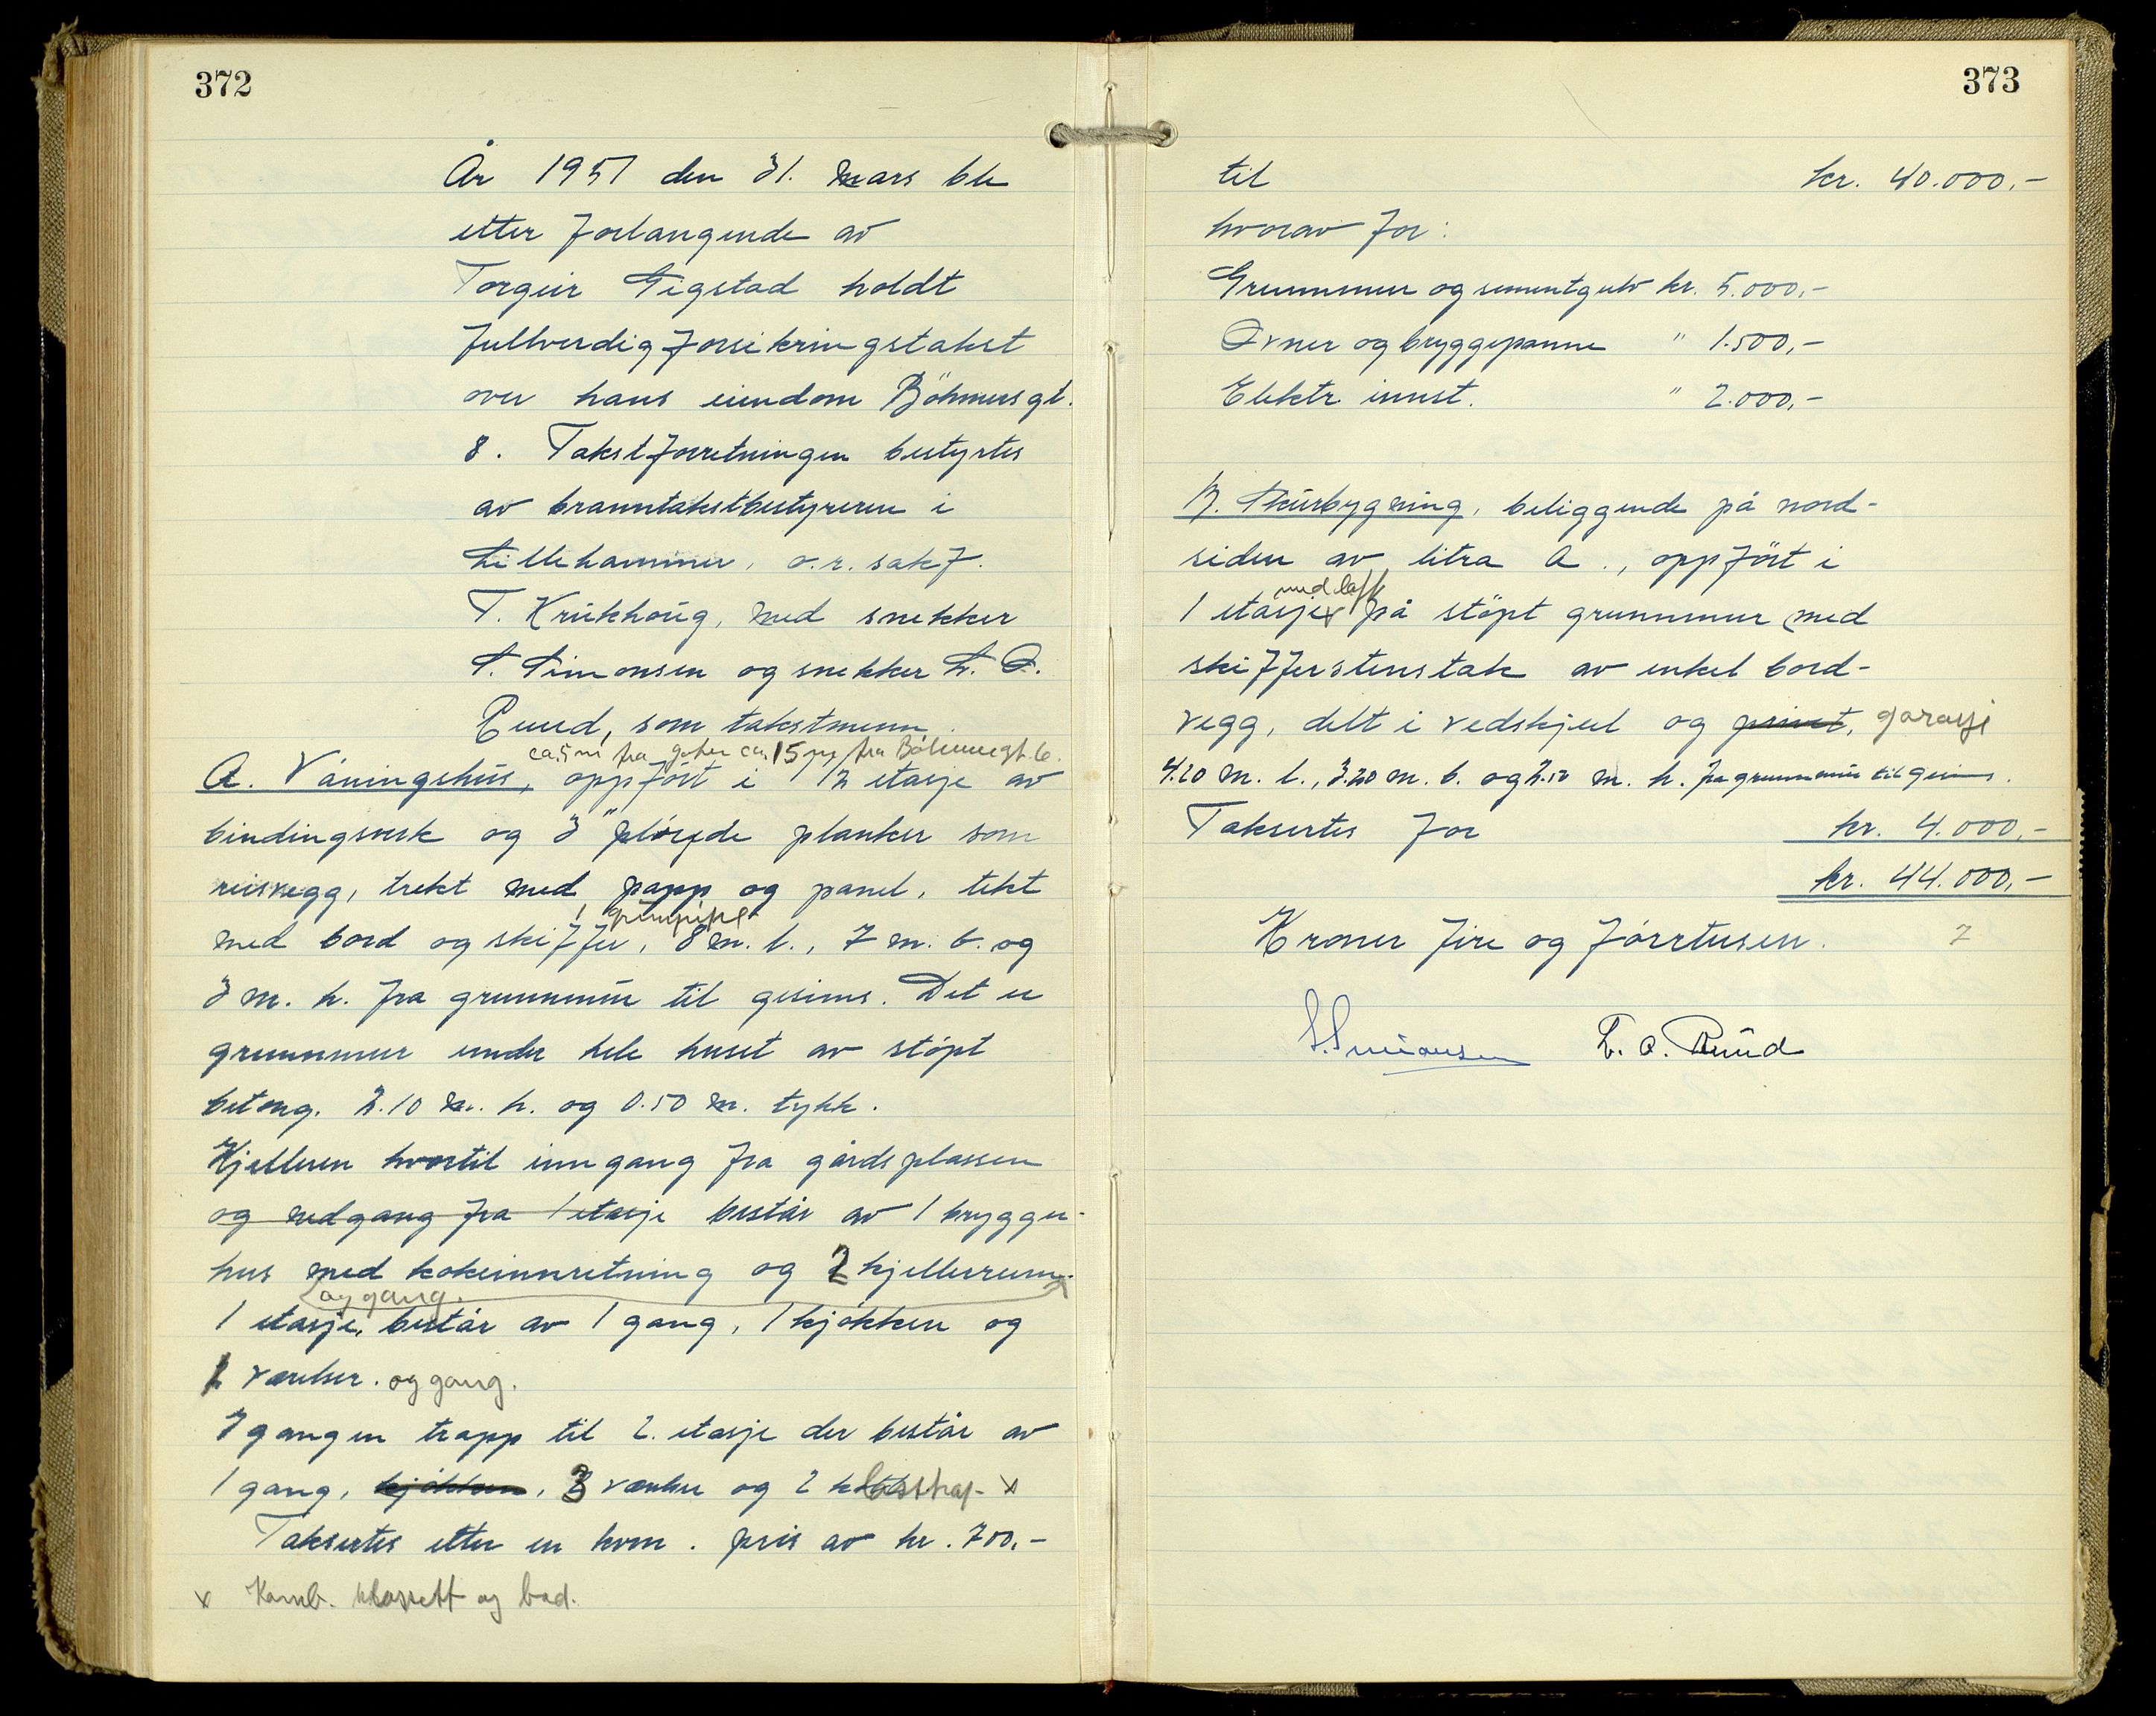 372
År 1951 den 31. mars ble
etter forlangende av
Torgeir Sigstad holdt
fullverdig forsikringstakst
over hans eiendom Böhmersgt.
8. Takstforretningen bestyrtes
av branntakstbestyreren i
Lillehammer, o.r. sakf.
T. Krukhaug, med snekker
S. Simonsen og snekker L. O.
Ruud, som takstmenn.
ca. 5 m fra gaten ca. 15 m fra Böhmersgt. 6.
A. Våningshus, oppfört i 1/2 etasje av
bindingsverk og 3" pløyde planker som
reisvegg, trekt med papp og panel, tekt
med bord og skiffer, 8 m. l., 7 m. b. og
3 m. h. fra grunnmur til gesims. Det er
grunnmur under hele huset av støpt
betong. 2.10 m. h. og 0.50 m. tykk.
Kjelleren hvortil inngang fra gårdsplassen
og nedgang fra 1 etasje består av 1 brygger-
hus med kokeinnretning og 2 kjellerrum.
og gang.
1 etasje, består av 1 gang, 1 kjøkken og
værelser. og gang.
I gangen trapp til 2. etasje der består av
1 gang, kjøkken, 3 værelser og 2 x
Taksertes etter en kvm. pris av kr. 700,-
x Komb. klosett og bad.
373
til kr. 40.000,-
hvorav for:
Grunnmur og sementgulv kr. 5.000,-
Ovner og bryggepanne " 1.500,-
Elektr. innst. " 2.000,-
B. Skurbygning, beliggende på nord-
siden av litra A., oppfört i
med loft
1 etasje på støpt grunnmur med
skifferstenstak av enkel bord-
vegg, delt i vedskjul og privet, garasje
4.20 m. l., 3.20 m. b. og 2.50 m. h. fra grunnmur til gesims.
Taksertes for kr. 4.000,-
kr. 44.000,-
Kroner fire og førrtusen. 7
S. Simonsen L. O. Ruud